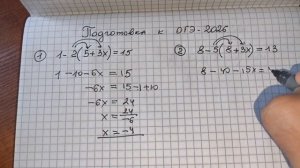 Подготовка к ОГЭ-2026
① 1-2(5+3x)=15
1-10-6x=15
-6x=15-1+10
-6x=24
x=24/-6
x=-4
② 8-5(8+3x)=13
8-40-15x=